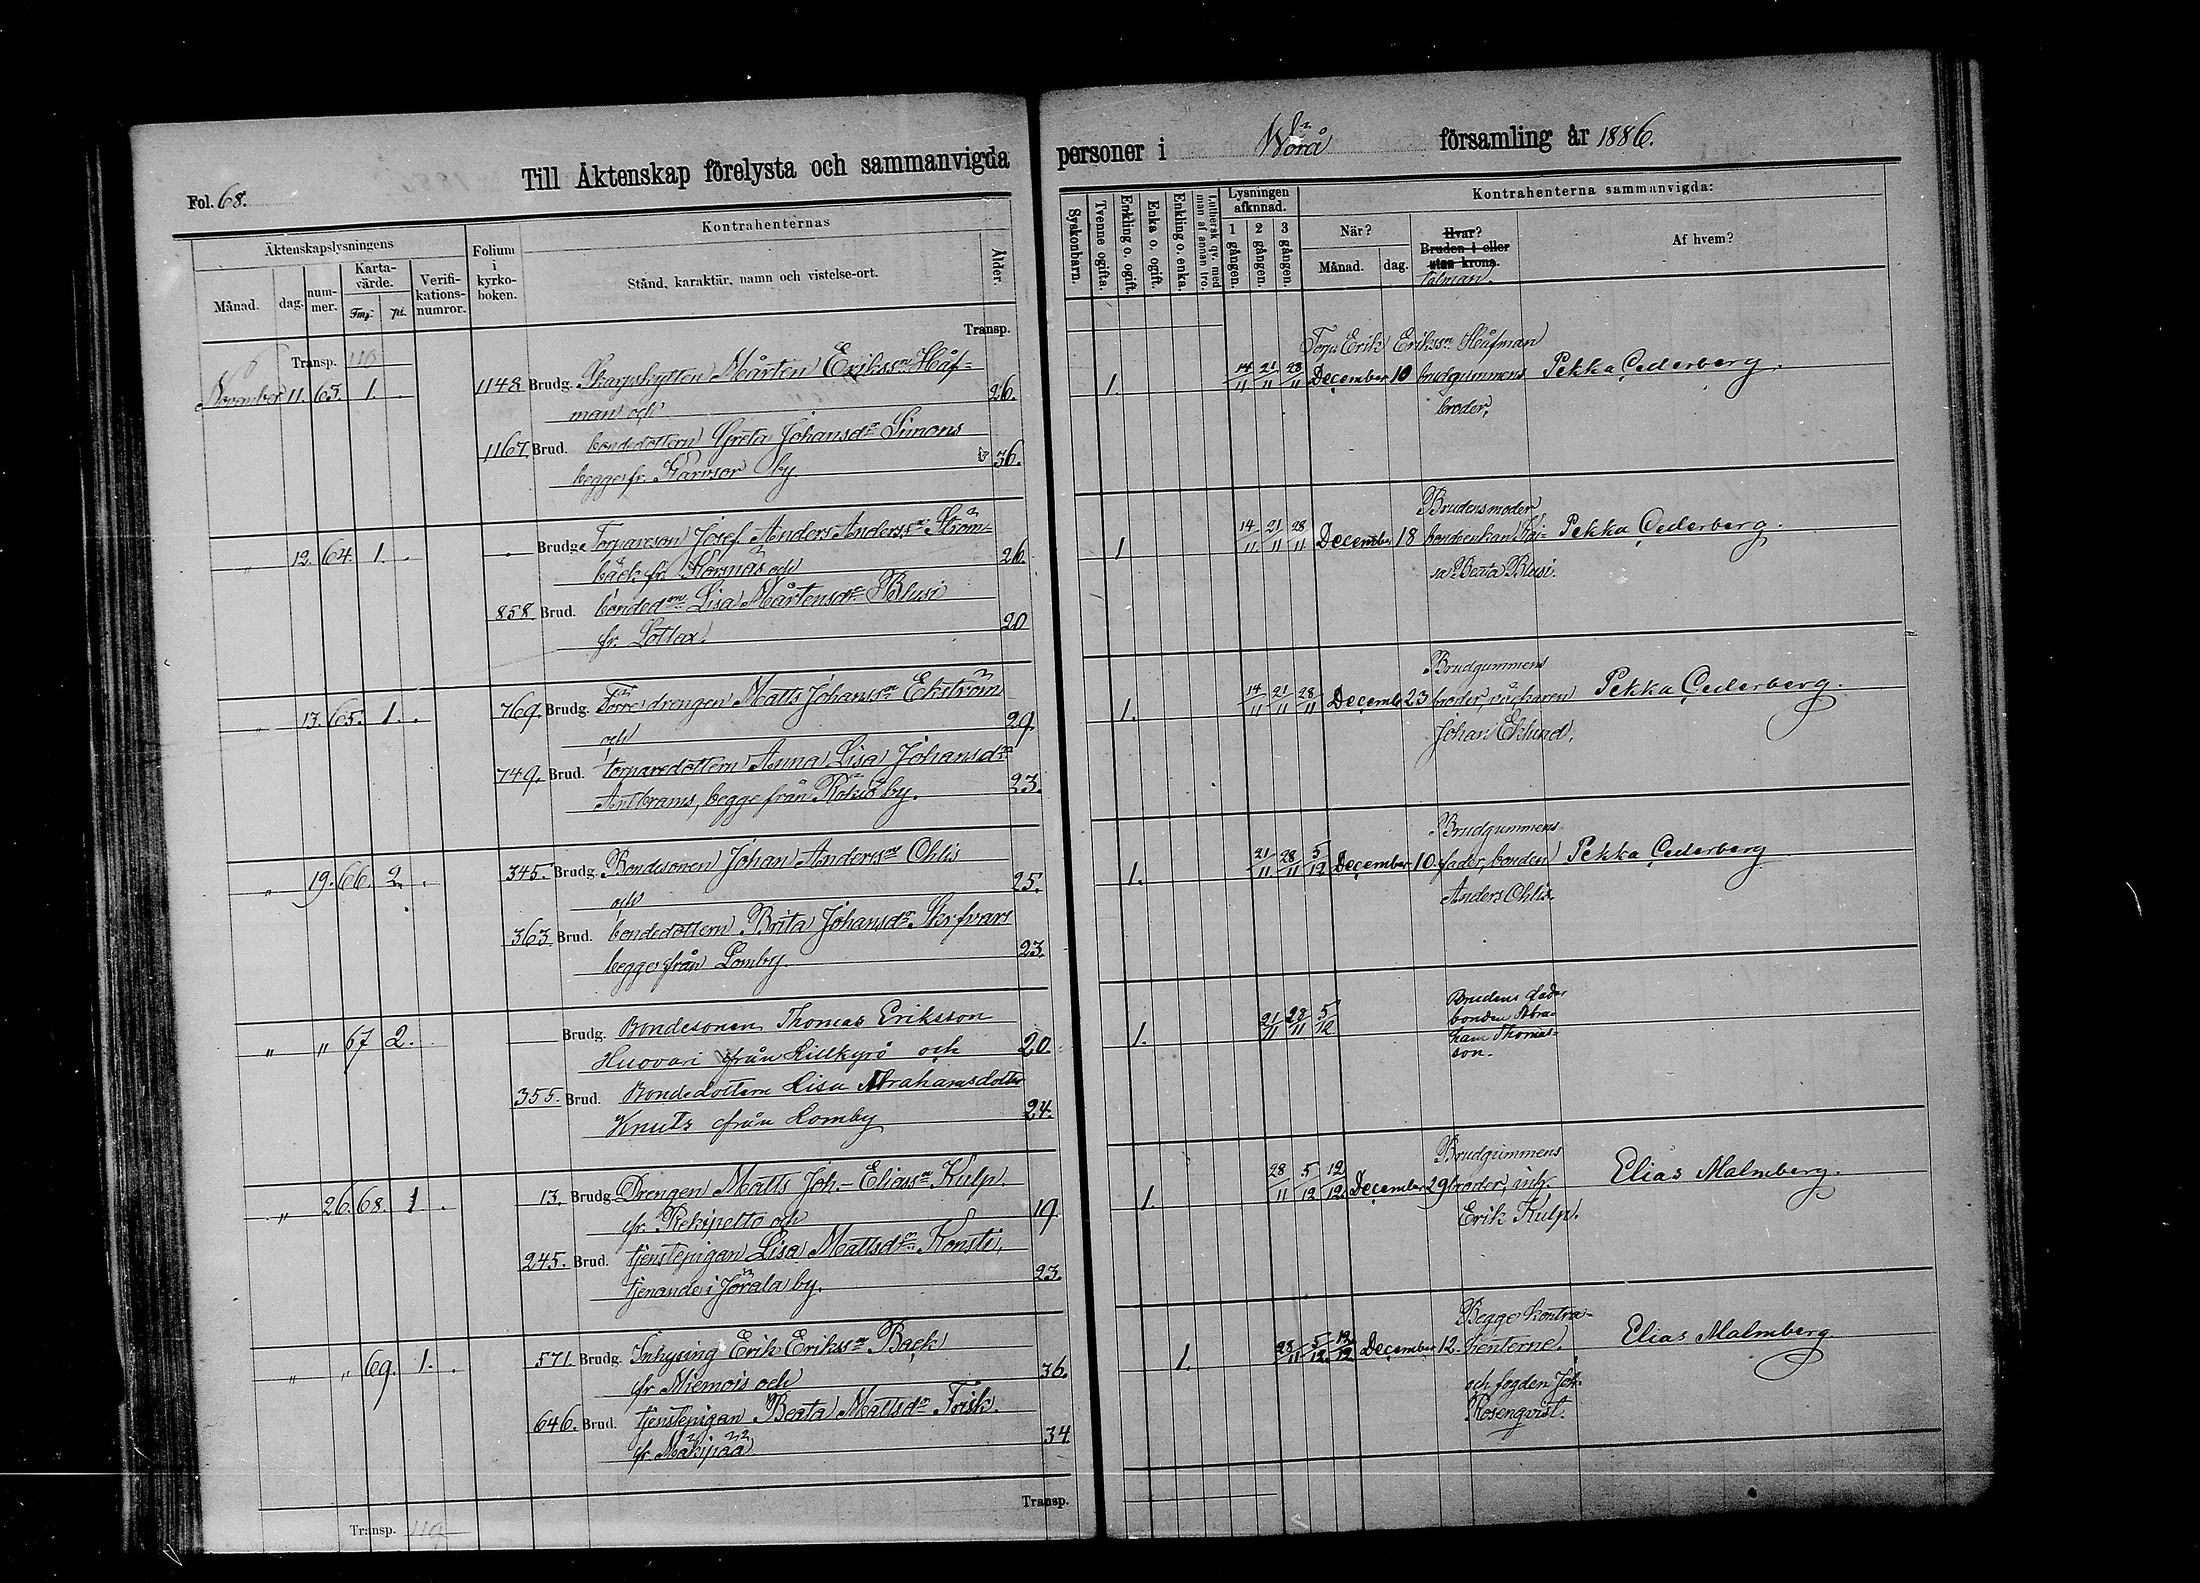 Fol. 68.
Till Äktenskap förelysta och sammanvigda
Äktenskapslysningens
Månad.
dag.
num-
mer.
Karta-
värde.
Fmp. pi.
Verifi-
kations-
numror.
Folium
i
kyrko-
boken.
Kontrahenternas
Stånd, karaktär, namn och vistelse-ort.
Ålder.
Transp.
Transp. 110
November 11. 63. 1. . 1148 Brudg. Skarpskytten Mårten Erikssn Håf-
man och 26.
1167. Brud. bondedottern Greta Johansdr Simons
begge fr. Kärmsor by 36.
" 12. 64. 1. . Brudg. Torpareson Josef Anders Anderssn Ström-
bäck fr. och 26.
858 Brud. bonded. Lisa Mårtensdr Blusi
fr. Lotlax. 20
" 13. 65. 1. . 769. Brudg. Förre drengen Matts Johanssn Ekström
och 29
749. Brud. torparedottern Anna Lisa Johansdr
begge från Rökiö by. 23.
" 19. 66. 2. . 345. Brudg. Bondesonen Johan Anderssn Ohlis
och 25.
363 Brud. bondedottern Brita Johansdr Skrifvars
begge från Lomby. 23.
" " 67 2. Brudg. Bondesonen Thomas Eriksson
Huovari från Lillkyrö och 20.
355. Brud. Bondedottern Lisa Abrahamsdotter
Knuts från Lomby 24.
" 26. 68. 1 . 13. Brudg. Drengen Matts Joh. Eliassn Kulp
fr. Rekipelto och 19
245. Brud. tjenstepigan Lisa Mattsdr Konsti,
tjenande i Jörala by. 23.
" " 69. 1. . 571. Brudg. Inhysing Erik Erikssn Back
fr Miemois och 36.
646. Brud. tjenstepigan Beata Mattsdr Frisk.
fr. Mäkipää 34
Transp.
Transp. 119
personer i Wörå församling år 1886.
Syskonbarn.
Tvenne ogifta.
Enkling o. ogift.
Enka o. ogift.
Enkling o. enka.
Luthersk qv. med
man af annan tro.
Lysningen
afknnad.
1 gången.
2 gången.
3 gången.
Kontrahenterna sammanvigda:
När?
Månad. dag.
Hvar?
Bruden i eller
utan krona.
talman.
Af hvem?
Torp. Erik Erikssn Håfman
1. 14/11 21/11 28/11 December 10 brudgummens Pekka Cederberg.
broder.
Brudens moder
1 14/11 21/11 28/11 December 18 bondeenkan Kai- Pekka Cederberg.
sa Beata Blusi.
Brudgummens
1. 14/11 21/11 28/11 December 23 broder, Pekka Cederberg.
Johan Eklund.
Brudgummens
1. 21/11 28/11 5/12 December 10. fader, bonden Pekka Cederberg
Anders Ohlis.
Brudens fader
1. 21/11 28/11 5/12 bonden Abra-
ham Thomas-
son.
Brudgummens
1. 28/11 5/12 12/12 December 29 broder, inh. Elias Malmberg.
Erik Kulp.
Begge kontra-
1. 28/11 5/12. 12/12 December 12. henterne. Elias Malmberg
och fogden Joh.
Rosenqvist.